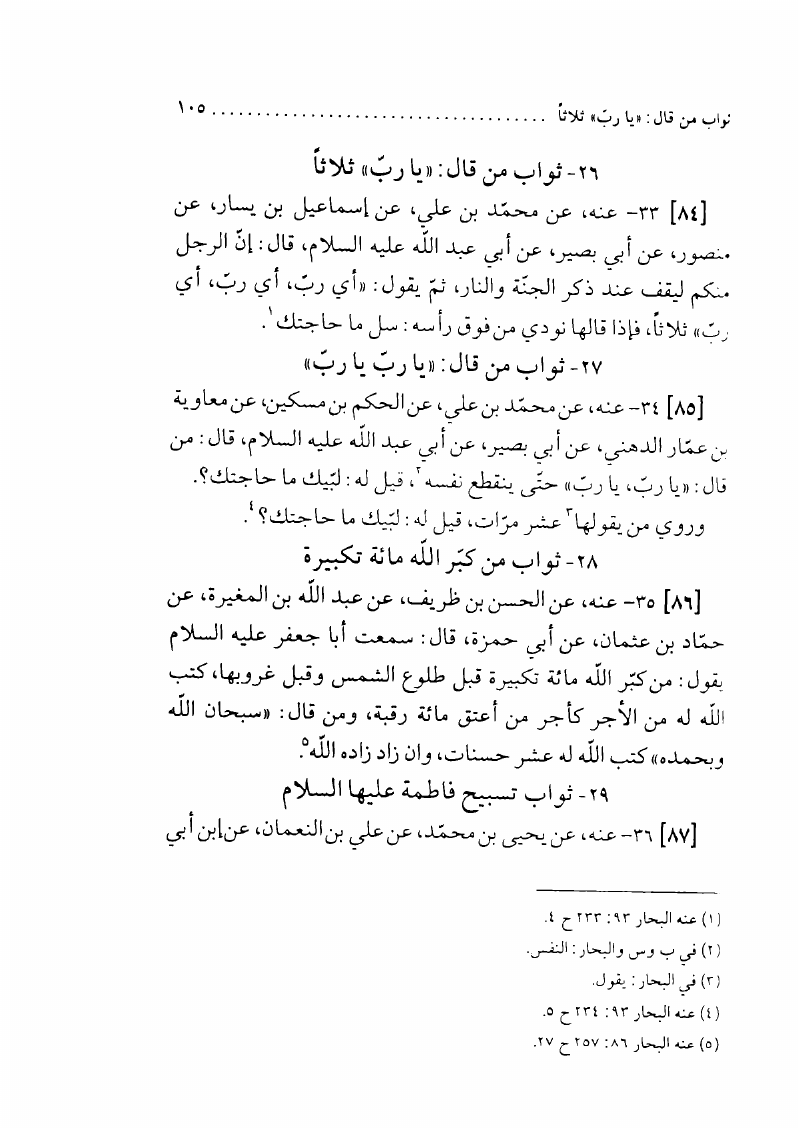 ثواب من قال: «يا ربّ» ثلاثاً ..................................... ١٠٥
٢٦- ثواب من قال: «يا ربّ» ثلاثاً
[٨٤] ٣٣- عنه، عن محمّد بن علي، عن إسماعيل بن يسار، عن
منصور، عن أبي بصير، عن أبي عبد اللّه عليه السلام، قال: إنّ الرجل
منكم ليقف عند ذكر الجنّة والنار، ثمّ يقول: «أي ربّ، أي ربّ، أي
ربّ» ثلاثاً، فإذا قالها نودي من فوق رأسه: سل ما حاجتك١.
٢٧- ثواب من قال: «يا ربّ يا ربّ»
[٨٥] ٣٤- عنه، عن محمّد بن علي، عن الحكم بن مسكين، عن معاوية
بن عمّار الدهني، عن أبي بصير، عن أبي عبد اللّه عليه السلام، قال: من
قال: «يا ربّ، يا ربّ» حتّى ينقطع نفسه٢، قيل له: لبّيك ما حاجتك؟.
وروي من يقولها٣ عشر مرّات، قيل له: لبّيك ما حاجتك؟٤.
٢٨- ثواب من كبّر اللّه مائة تكبيرة
[٨٦] ٣٥- عنه، عن الحسن بن ظريف، عن عبد اللّه بن المغيرة، عن
حمّاد بن عثمان، عن أبي حمزة، قال: سمعت أبا جعفر عليه السلام
يقول: من كبّر اللّه مائة تكبيرة قبل طلوع الشمس وقبل غروبها، كتب
اللّه له من الأجر كأجر من أعتق مائة رقبة، ومن قال: «سبحان اللّه
وبحمده» كتب اللّه له عشر حسنات، وان زاد زاده اللّه٥.
٢٩- ثواب تسبيح فاطمة عليها السلام
[٨٧] ٣٦- عنه، عن يحيى بن محمّد، عن علي بن النعمان، عن إبن أبي
(١) عنه البحار ٩٣: ٢٣٣ ح ٤.
(٢) في ب وس والبحار: النفس.
(٣) في البحار: يقول.
(٤) عنه البحار ٩٣: ٢٣٤ ح ٥.
(٥) عنه البحار ٨٦: ٢٥٧ ح ٢٧.